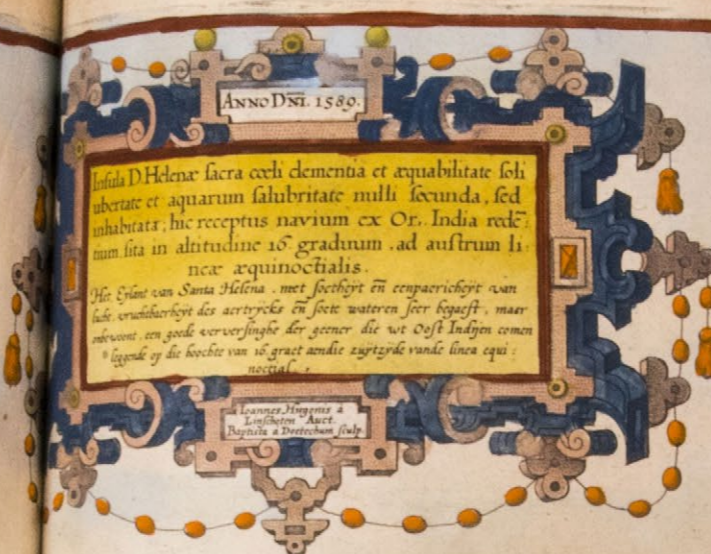 ANNO DNI. 1589.
Insula D. Helenæ sacra cœli clementia et æquabilitate soli
ubertate et aquarum salubritate nulli secunda, sed
inhabitata, hic receptus navium ex Or. India redeũ:
tium sita in altitudine 16. graduum . ad austrum li:
neæ æquinoctialis.
Het Eylant van Santa Helena . met soetheyt eñ eenpaericheyt van
lucht, vruchtbaerheyt des aertrycks eñ soete wateren seer begaeft, maer
onbewoont, een goede verversinghe der geener die wt Oost Indjen comen
leggende op die hoochte van 16. graet aendie zuytzyde vande linea equi:
noctial.
Ioannes Hugonis a
Linschoten Auct.
Baptista a Doetechum sculp.